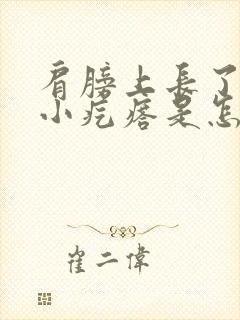 肩膀上長了
小疙瘩是怎
崔二偉